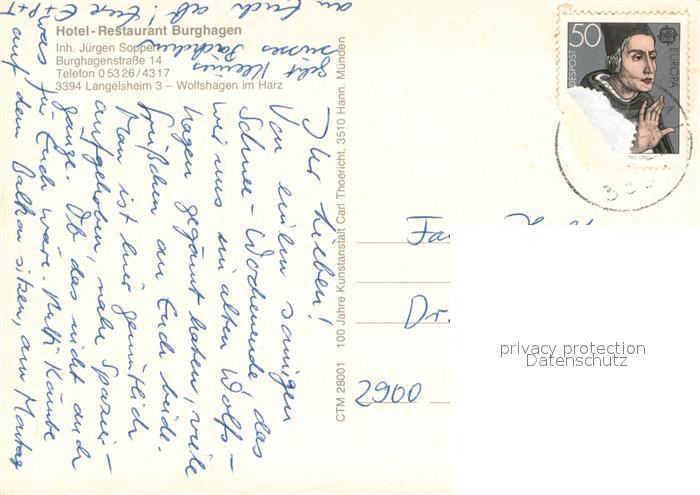 Hotel-Restaurant Burghagen
Inh. Jürgen Soppert
Burghagenstraße 14
Telefon 0 53 26 / 43 17
3394 Langelsheim 3 – Wolfshagen im Harz
Ihr Lieben!
Von einem sonnigen
Schnee-Wochenende, das
wir uns im alten Wolfs-
hagen gegönnt haben, viele
Grüßchen an Euch beide.
Man ist hier gemütlich
aufgehoben, nahe Spazier-
gänge. Ob das nicht auch
was für Euch wäre. Mutti könnte
auf dem Balkon sitzen, am Montag
geht kleines
süsses Päckchen
an Euch ab! Eure E+P+T
CTM 28001 100 Jahre Kunstanstalt Carl Thoericht, 3510 Hann. Münden
50
DEUTSCHE BUNDESPOST
EUROPA
Dr.
2900
privacy protection
Datenschutz